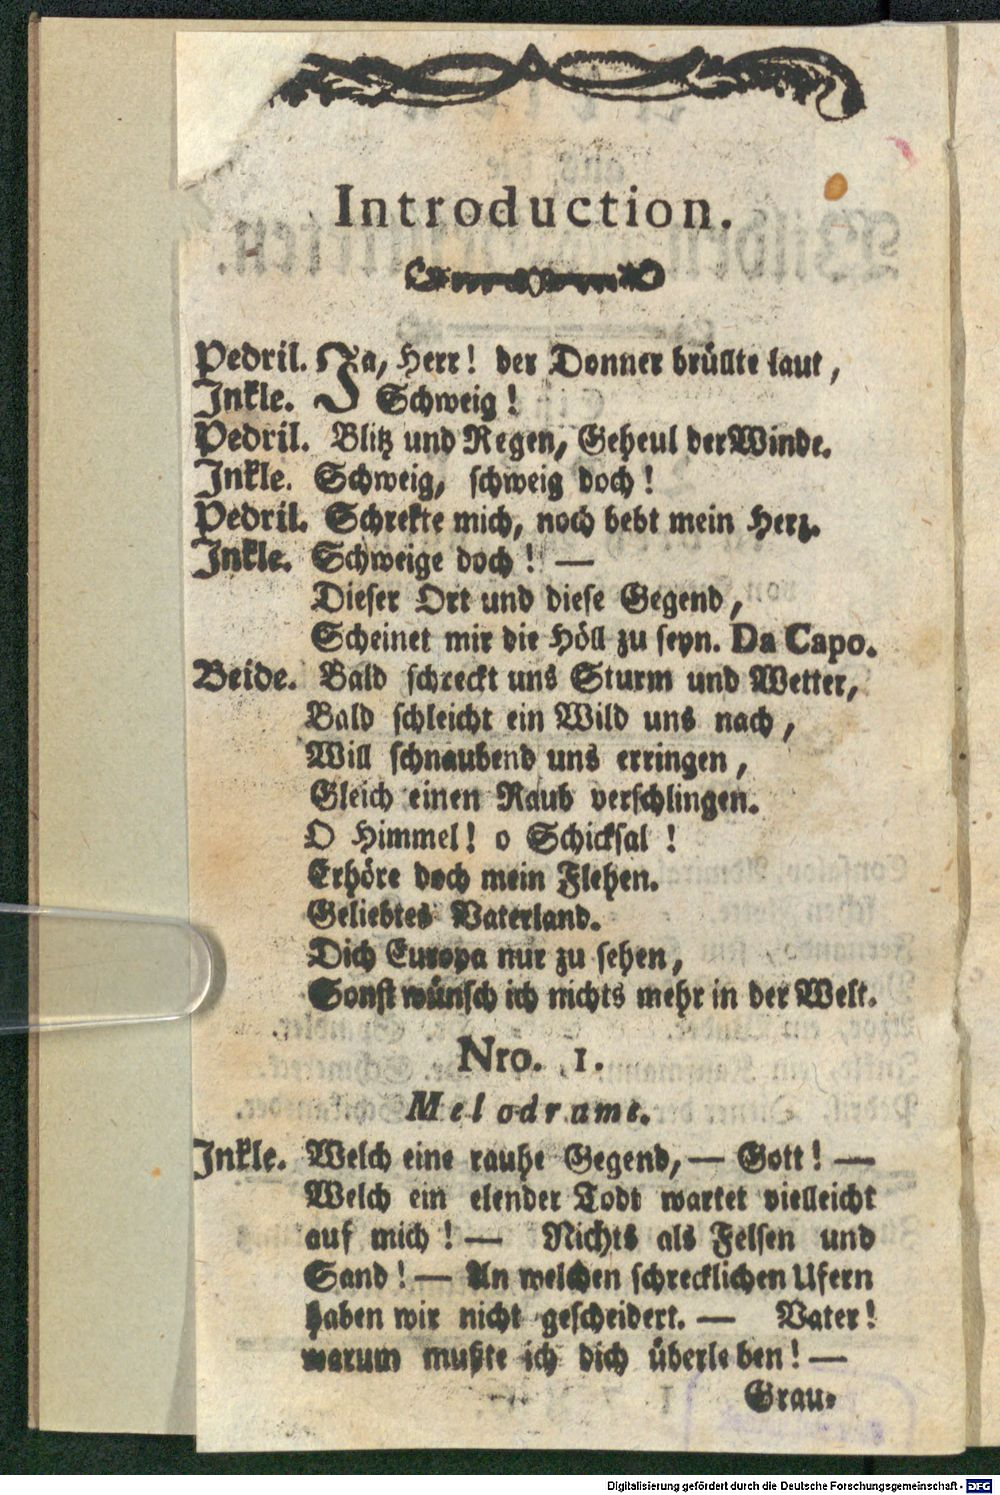 Introduction.
Pedril. Ja, Herr! der Donner brüllte laut,
Inkle. Schweig!
Pedril. Blitz und Regen, Geheul der Winde.
Inkle. Schweig, schweig doch!
Pedril. Schrekte mich, noch bebt mein Herz.
Inkle. Schweige doch! —
Dieser Ort und diese Gegend,
Scheinet mir die Höll zu seyn. Da Capo.
Beide. Bald schreckt uns Sturm und Wetter,
Bald schleicht ein Wild uns nach,
Will schnaubend uns erringen,
Gleich einen Raub verschlingen.
O Himmel! o Schicksal!
Erhöre doch mein Flehen.
Geliebtes Vaterland.
Dich Europa nur zu sehen,
Sonst wünsch ich nichts mehr in der Welt.
Nro. 1.
Melodrame.
Inkle. Welch eine rauhe Gegend, — Gott! —
Welch ein elender Todt wartet vielleicht
auf mich! — Nichts als Felsen und
Sand! — An welchen schrecklichen Ufern
haben wir nicht gescheidert. — Vater!
warum mußte ich dich überleben! —
Grau-
Digitalisierung gefördert durch die Deutsche Forschungsgemeinschaft - DFG